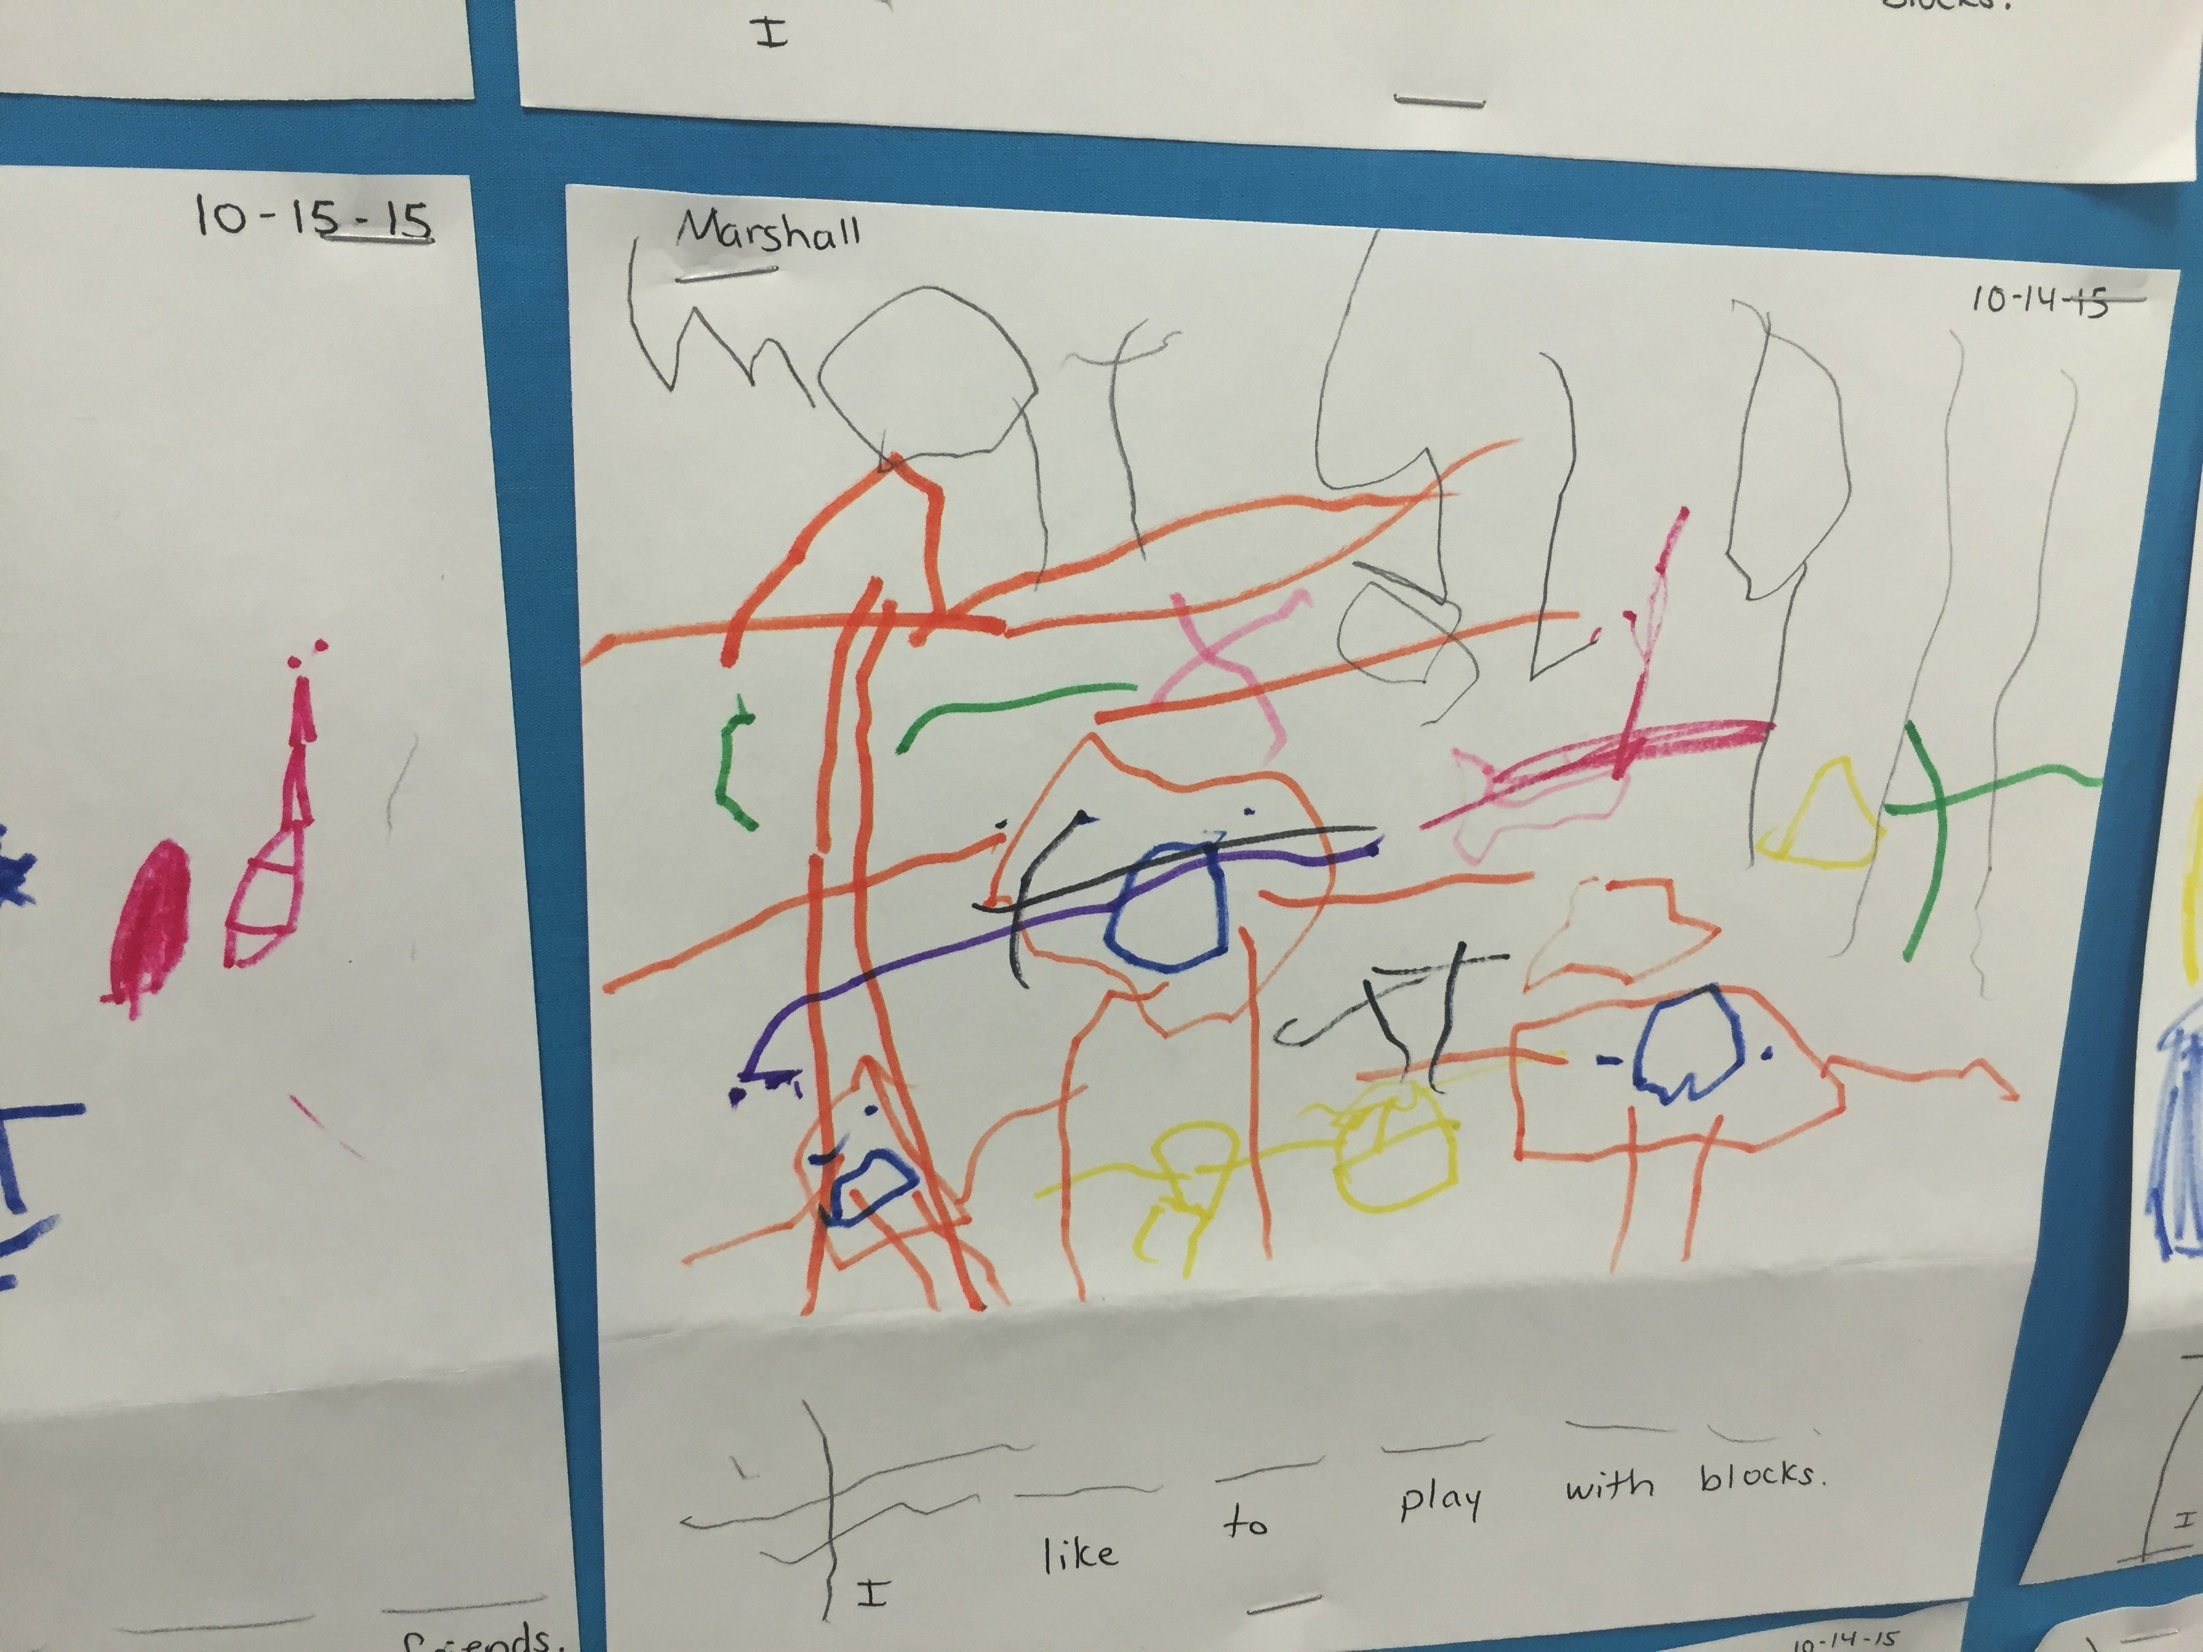 I
blocks.
10-15-15
Marshall
10-14-15
I like to play with blocks.
friends.
10-14-15
I